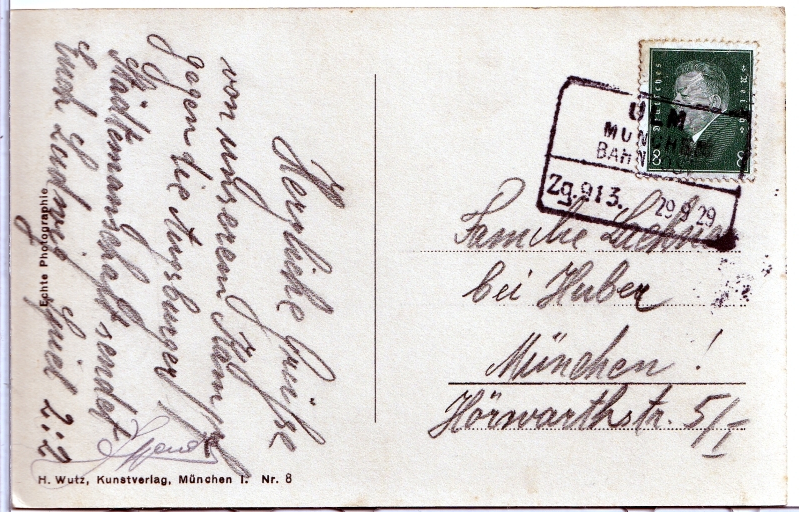 Herzliche Grüße
von unserem Kampf
gegen die Augsburger
Städtemannschaft sendet
Euch Ludwig Spiel 2:2
Echte Photographie
H. Wutz, Kunstverlag, München I. Nr. 8
Deutsches Reich
8 8
ULM
MÜNCHEN
BAHN
Zg. 913. 29 9 29
Familie
bei Huber
München!
Hörwarthstr. 5/I